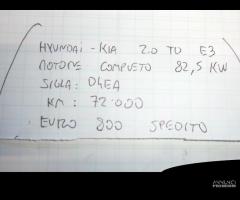 HYUNDAI - KIA 2.0 TD E3
MOTORE COMPLETO 82,5 KW
SIGLA: D4EA
KM: 72.000
EURO 800 SPEDITO